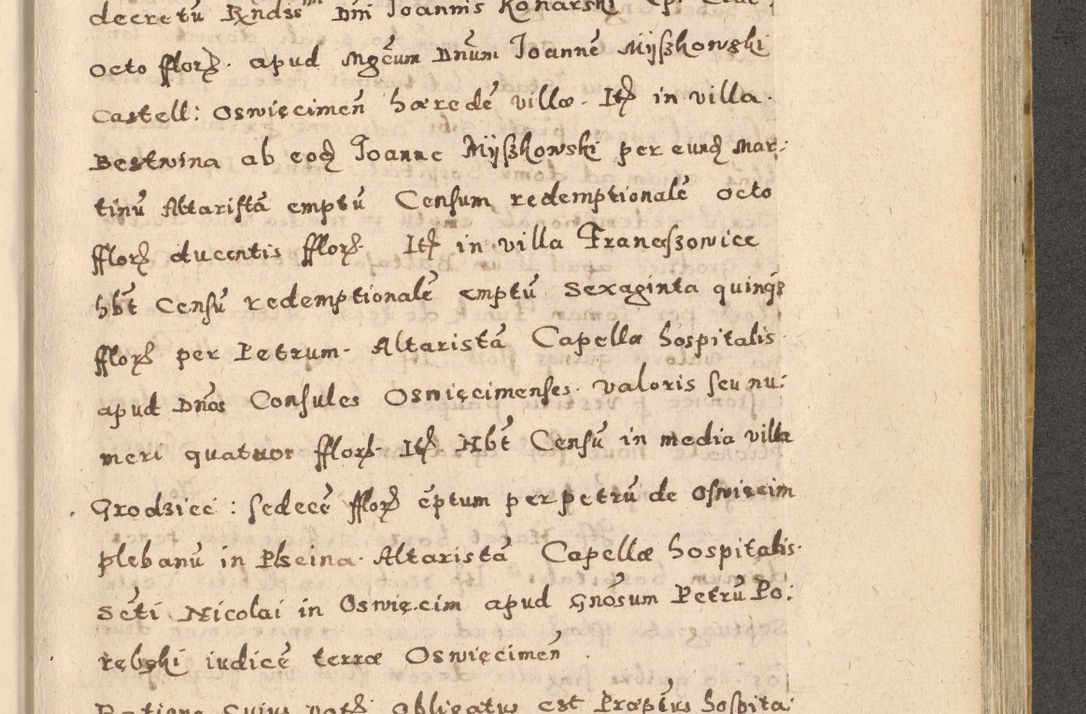 decretū Rndss Dni Joannis Konarski Ep.
octo fflorȝ. apud Mgcum Dnum Joannē Myszkowski
Castell: Oswięcimen̄ hæredē villæ. Itȝ in villa.
Bestwina ab eodȝ Joanne Myszkowski per eundȝ Mar:
tinū Altaristā emptū Censum redemptionalē octo
fflorȝ ducentis fflorȝ. Itȝ in villa Franczowice
hb̄t Censū redemptionalē emptū Sexaginta quinqȝ
fflorȝ per Petrum. Altaristā Capellæ hospitalis
apud Dnōs Consules Oswięcimenses. valoris seu nu:
meri quatuor fflorȝ. Itȝ Hb̄t Censū in media villa
Grodziec: sedecē fflorȝ ēptum per petrū de Oswięcim
plebanū in Pszina. Altaristā Capellæ hospitalis.
Scti Nicolai in Oswięcim apud Gnōsum Petrū Po:
rębski iudicē terræ Oswięcimen̄.
Ratione Cuius obligatus est Præptus hospita: